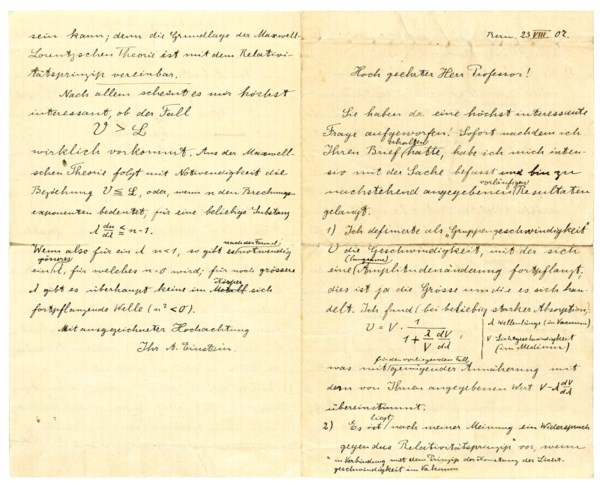 Bern. 23 VIII 07.
Hoch geehrter Herr Professor!
Sie haben da eine höchst interessante
Frage aufgeworfen! Sofort nachdem ich
erhalten
Ihren Brief hatte, habe ich mich inten-
siv mit der Sache befasst und bin zu
vorläufigen
nachstehend angegebenen Resultaten
gelangt.
1) Ich definierte als „Gruppengeschwindigkeit"
U die Geschwindigkeit, mit der sich
(langsame)
eine Amplitudenänderung fortpflanzt;
dies ist ja die Grösse um die es sich han-
delt. Ich fand (bei beliebig starker Absorption)
U = V · 1 / (1 + λ/V dV/dλ)
λ Wellenlänge (im Vakuum)
V Lichtgeschwindigkeit
(im Medium)
für den vorliegenden Fall
was mit genügender Annäherung mit
dem von Ihnen angegebenen Wert V - λ dV/dλ
übereinstimmt.
liegt
2) Es ist nach meiner Meinung ein Widerspruch
gegen das Relativitätsprinzip* vor, wenn
* in Verbindung mit dem Prinzip der Konstanz der Licht-
geschwindigkeit im Vakuum
sein kann; denn die Grundlage der Maxwell-
Lorentzschen Theorie ist mit dem Relativi-
tätsprinzip vereinbar.
Nach allem scheint es mir höchst
interessant, ob der Fall
U > L
wirklich vorkommt. Aus der Maxwell-
schen Theorie folgt mit Notwendigkeit die
Beziehung U ≦ L, oder, wenn n den Brechungs-
exponenten bedeutet, für eine beliebige Substanz
λ dn/dλ ≦ n-1.
nach der Formel
Wenn also für ein λ n<1, so gibt es notwendig
grösseres
ein λ, für welches n=0 wird; für noch grössere
Körper
λ gibt es überhaupt keine im Metall sich
fortpflanzende Welle (n² < 0).
Mit ausgezeichneter Hochachtung
Ihr A. Einstein.